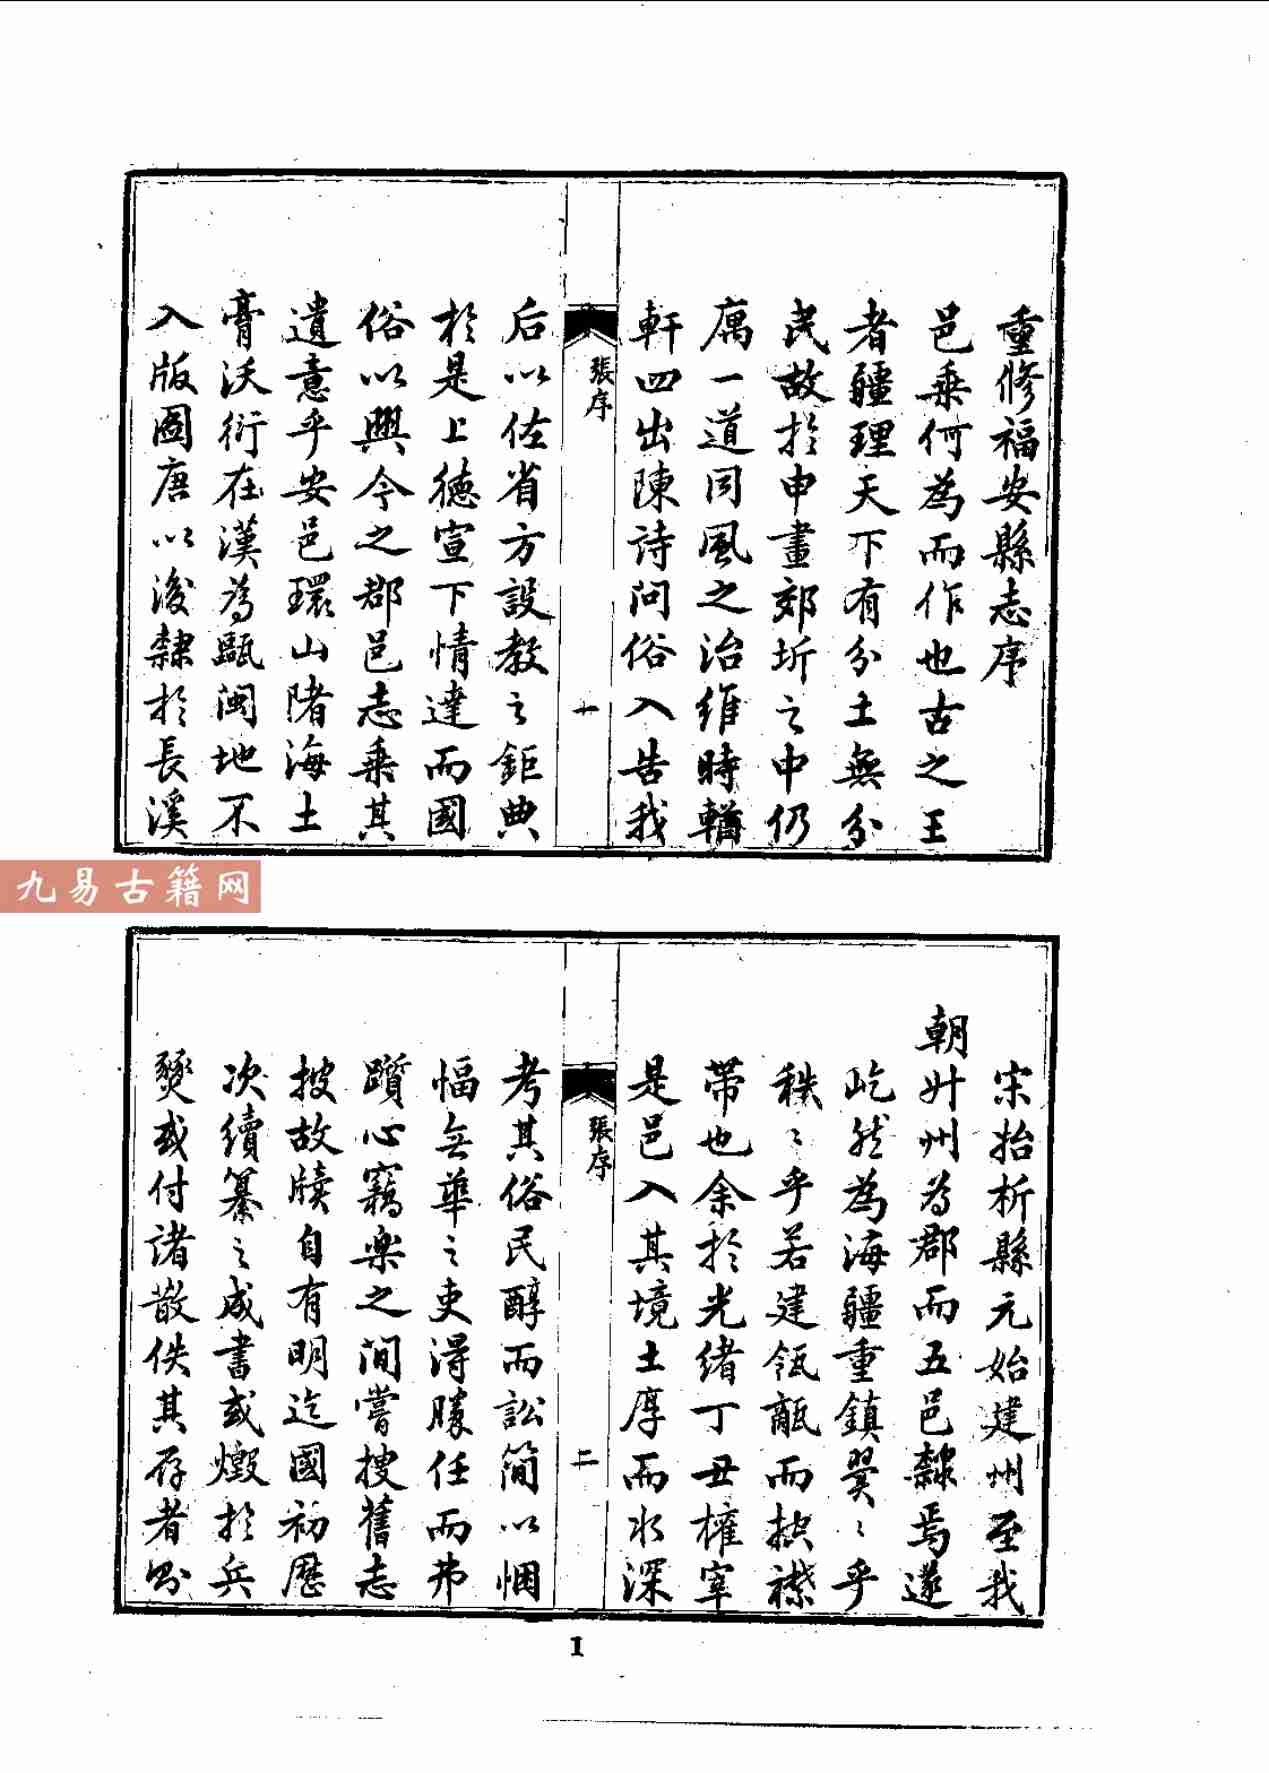 重修福安縣志序
邑乗何為而作也古之王
者疆理天下有分土無分
民故於申畫郊圻之中仍
厲一道同風之治維時輶
軒四出陳詩問俗入告我
張序
一
后以佐省方設教之鉅典
於是上德宣下情達而國
俗以興今之郡邑志乗其
遺意乎安邑環山陼海土
膏沃衍在漢為甌閩地不
入版圖唐以後隸於長溪
九易古籍网
宋始析縣元始建州至我
朝升州為郡而五邑隸焉遂
屹然為海疆重鎮翼〻乎
秩〻乎若建瓴甋而控襟
帶也余於光緒丁丑權宰
是邑入其境土厚而水深
張序
二
考其俗民醇而訟簡以悃
愊無華之吏得勝任而弗
躓心竊樂之間嘗搜舊志
披故牘自有明迄國初歷
次續纂之成書或燬於兵
燹或付諸散佚其存者
1